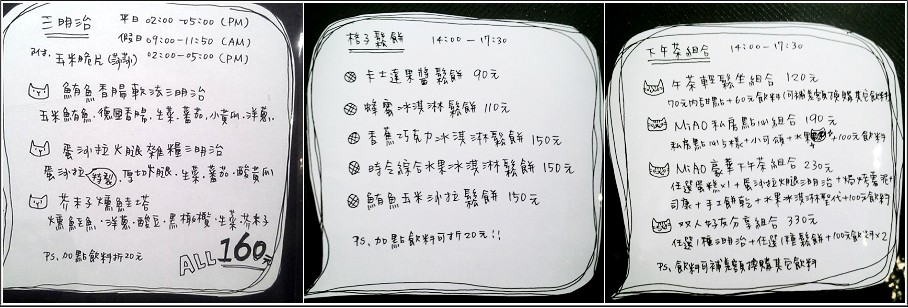 三明治 平日 02:00-05:00 (PM)
假日 09:00-11:50 (AM)
02:00-05:00 (PM)
附. 玉米脆片
鮪魚香腸軟法三明治
玉米鮪魚.德國香腸.生菜.蕃茄.小黃瓜.洋蔥.
蛋沙拉火腿雜糧三明治
蛋沙拉(特製).厚切火腿.生菜.蕃茄.酸黃瓜
芥末子燻鮭塔
燻鮭魚.洋蔥.酸豆.黑橄欖.生菜.芥末子
PS. 加點飲料折20元
ALL 160元
格子鬆餅 14:00-17:30
卡士達果醬鬆餅 90元
蜂蜜冰淇淋鬆餅 110元
香蕉巧克力冰淇淋鬆餅 150元
時令綜合水果冰淇淋鬆餅 150元
鮪魚玉米沙拉鬆餅 150元
PS. 加點飲料可折20元!!
下午茶組合 14:00-17:30
午茶輕鬆坐組合 120元
70元內甜點+60元飲料(可補差額換購其它飲料)
MiAO私房點心組合 190元
私房點心5樣+小可頌+水果+100元飲料
MiAO豪華下午茶組合 230元
任選蛋糕x1+蛋沙拉火腿三明治+焗烤薯泥+
司康+手工餅乾+水果冰淇淋聖代+100元飲料
双人好友分享組合 330元
任選1種三明治+任選1種鬆餅+100元飲料x2
PS. 飲料可補差額換購其它飲料